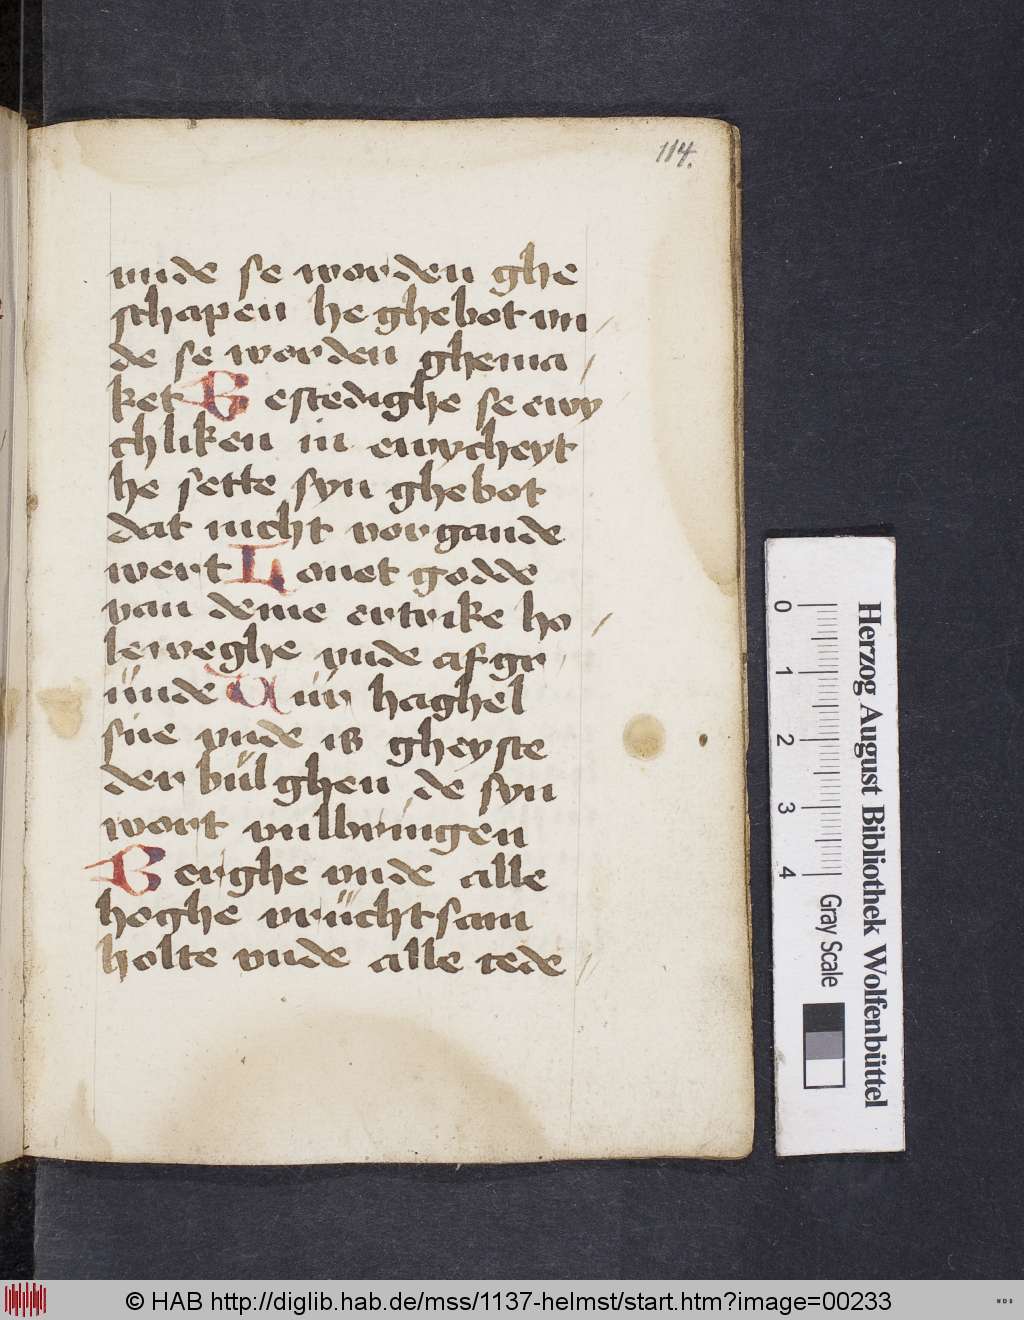 114.
vnde se worden ghe
schapen he ghebot vn /
de se worden ghema /
ket Bestedighe se ewy
chliken in ewycheyt
he sette syn ghebot
dat nicht vorgande
wert Louet godde
van deme ertrike ho /
leweghe vnde afgr /
ünde Vür haghel
sne vnde is gheyste
der bülghen de syn
wort vulbringen
Berghe vnde alle
hoghe vrüchtsam
holte vnde alle cede /
0 1 2 3 4
Gray Scale
Herzog August Bibliothek Wolfenbüttel
© HAB http://diglib.hab.de/mss/1137-helmst/start.htm?image=00233